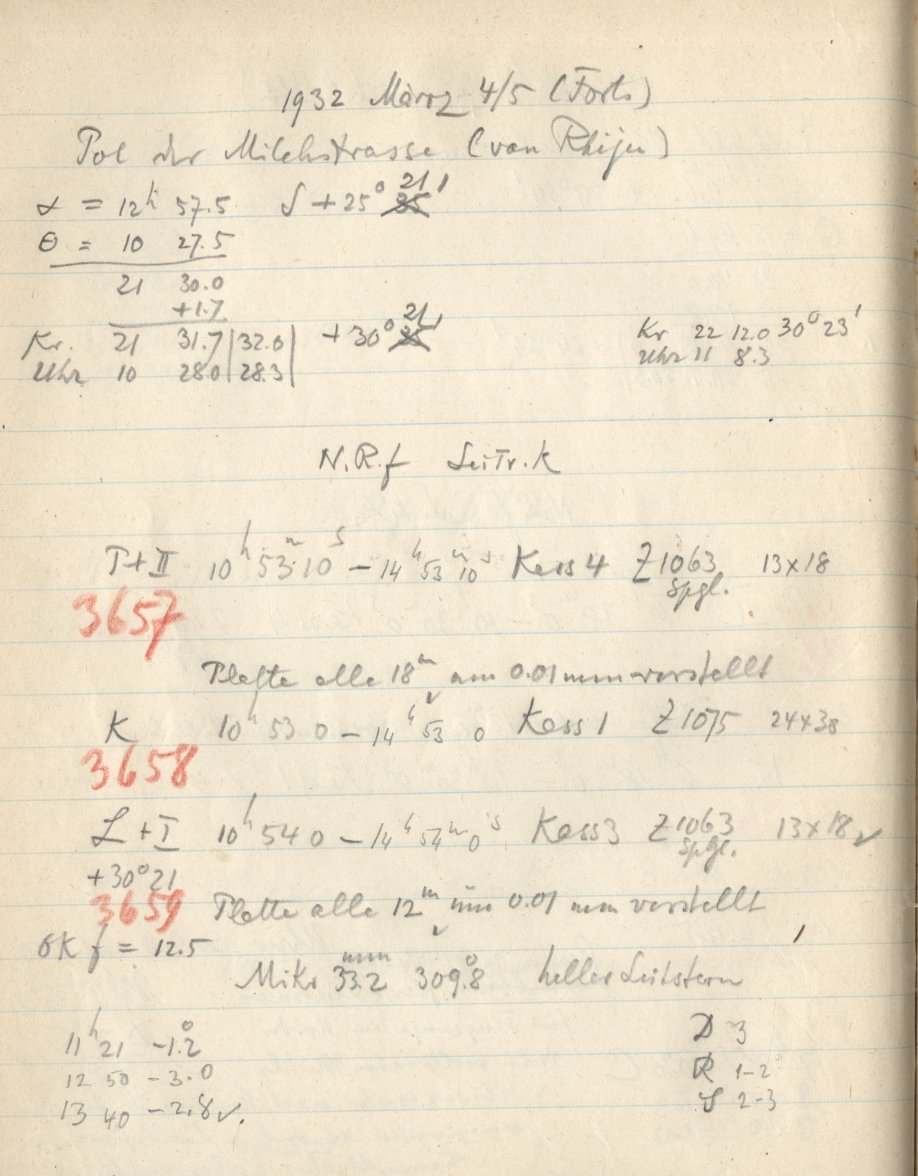 1932 März 4/5 (Forts)
Pol der Milchstrasse (van Rhijn)
α = 12h 57.5 δ +25° 21'
θ = 10 27.5
21 30.0
+1.7
Kr. 21 31.7 | 32.0 | +30° 21'
Uhr 10 28.0 | 28.3 |
Kr 22 12.0 30° 23'
Uhr 11 8.3
N.R.f Leitr. K
T+II 10h 53m 10s – 14h 53m 10s Kass 4 Z1063 13x18
Spgl.
3657
Platte alle 18m um 0.01 mm verstellt
K 10h 53 0 – 14h 53 0 Kass 1 Z1075 24x38
3658
L+I 10h 54 0 – 14h 54m 0s Kass 3 Z1063 13x18 ✓
Spgl.
+30° 21
3659 Platte alle 12m um 0.01 mm verstellt
OK f = 12.5
Mikr 33.2mm 309.8° heller Leitstern
11h 21 -1.2°
12 50 -3.0
13 40 -2.8 ✓
D 3
R 1-2
S 2-3